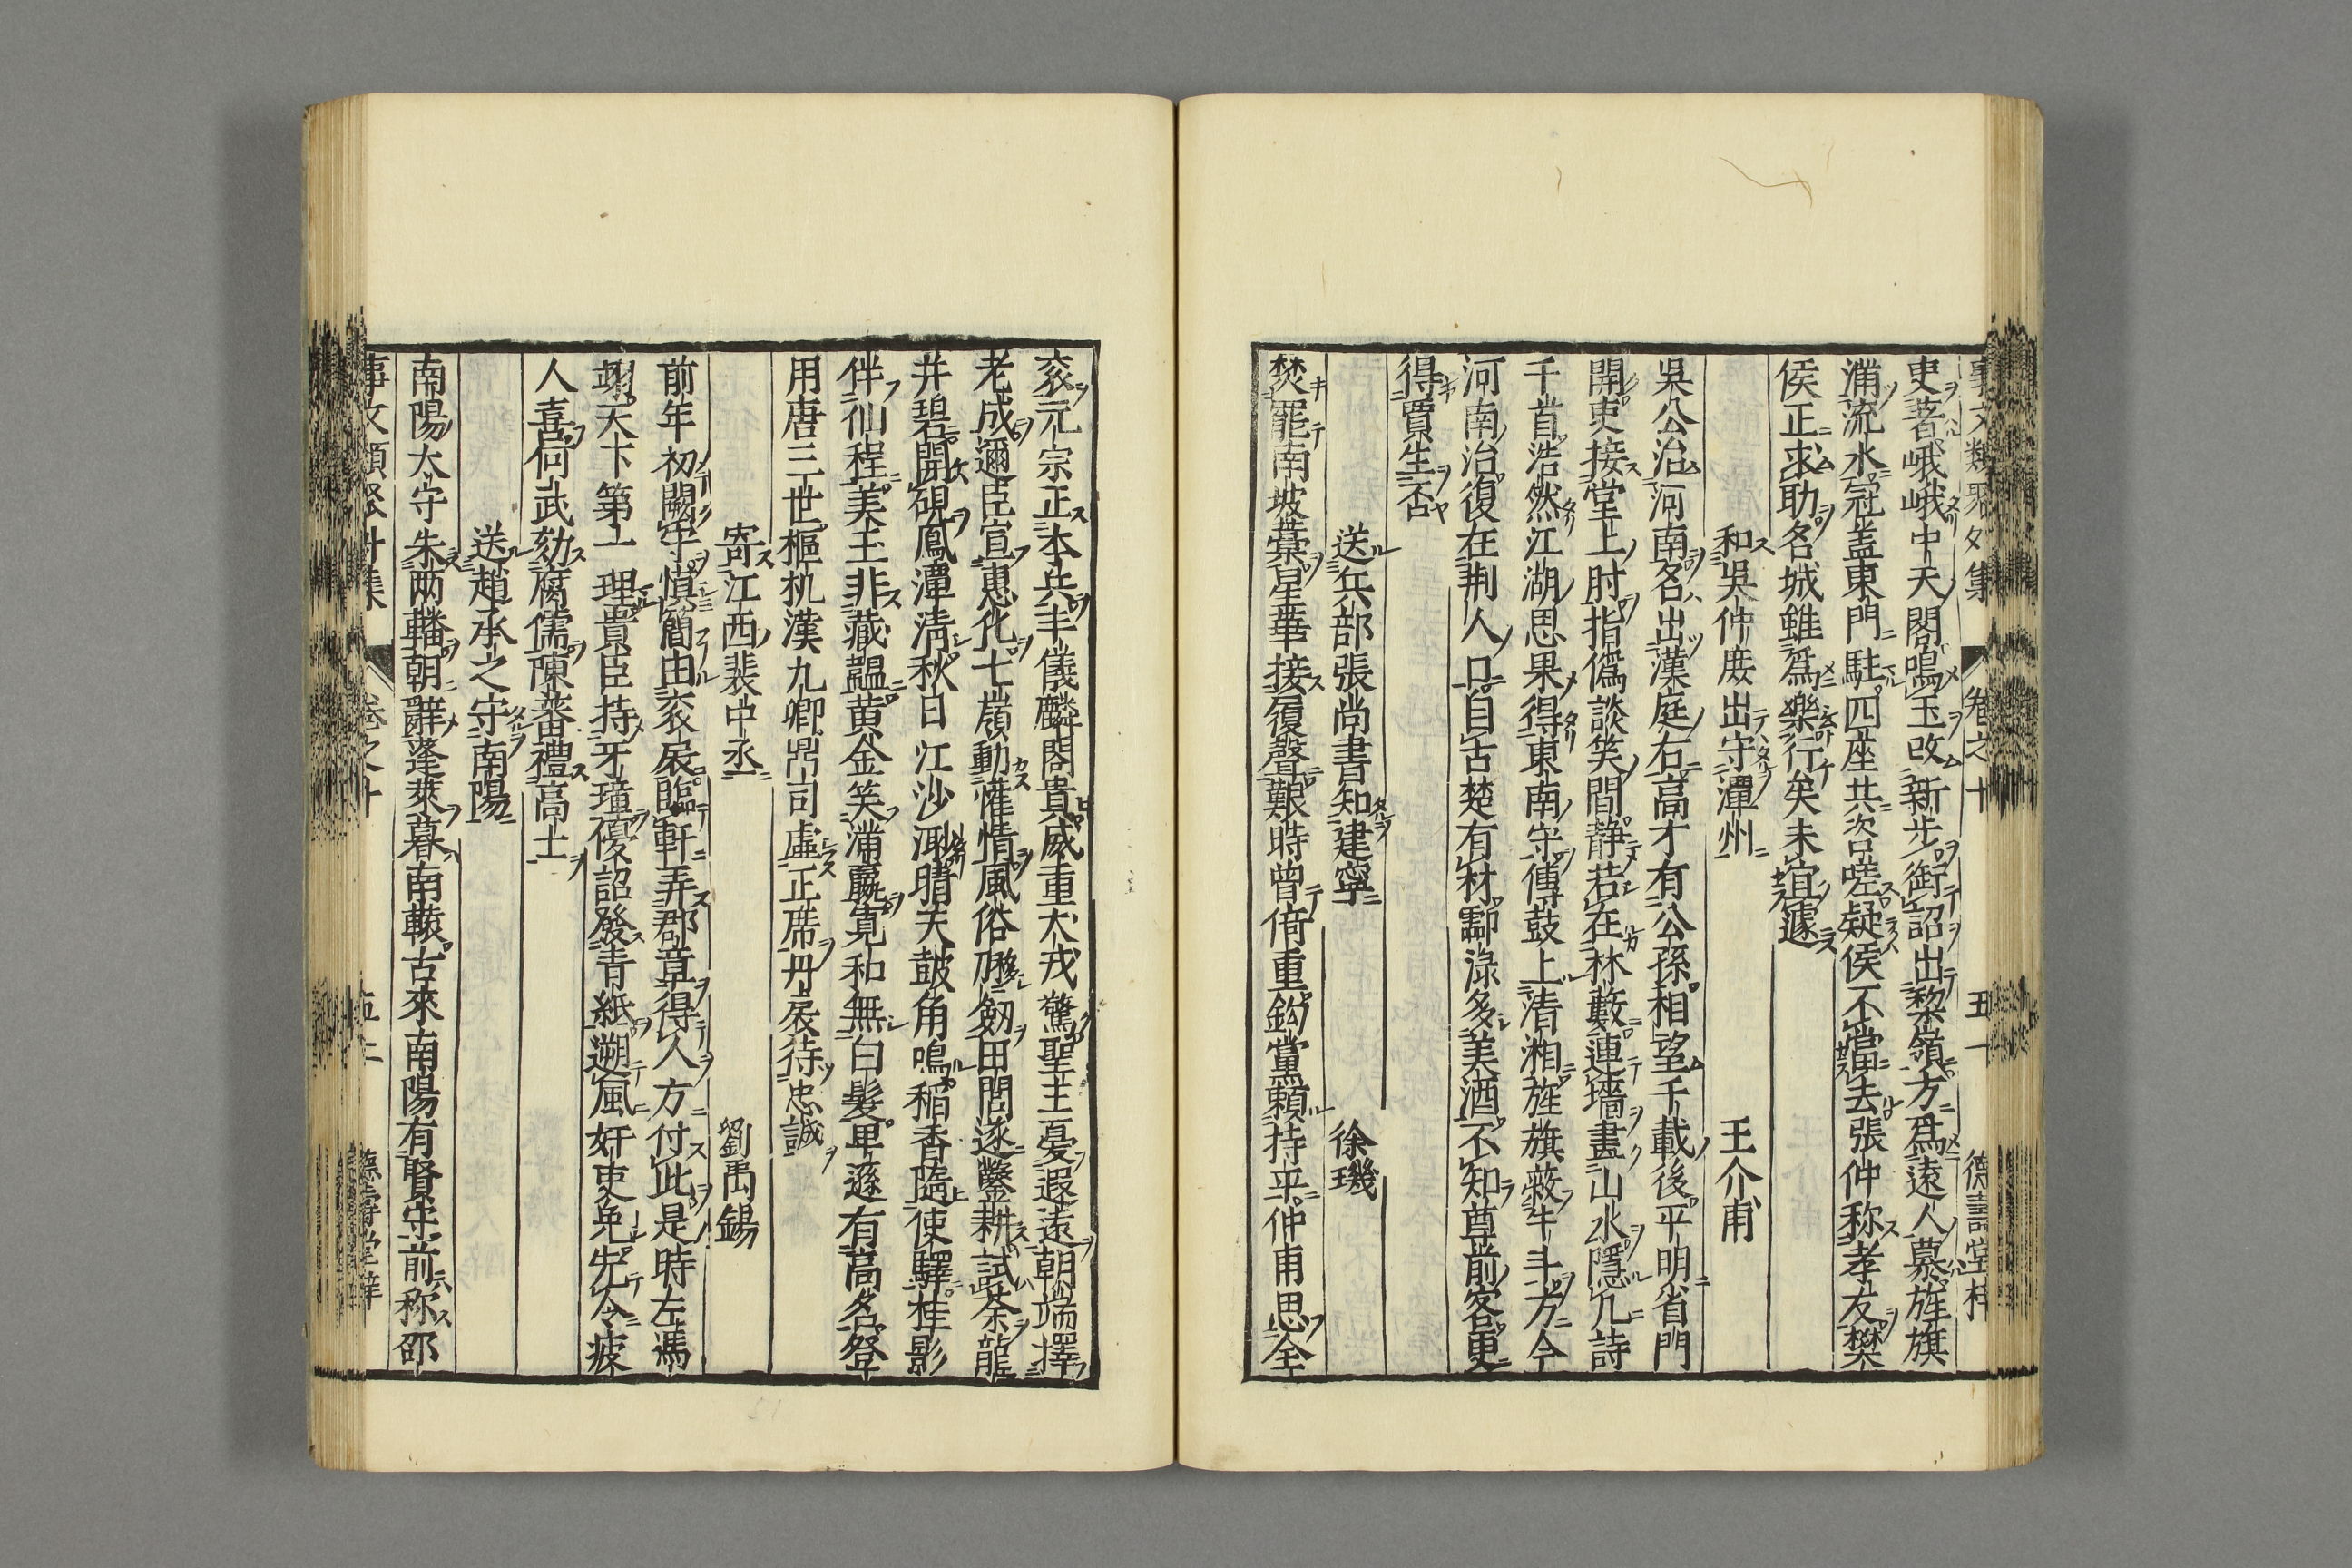 事文類聚外集 卷之十 五十一 德壽堂梓
吏著峨峨中天閣鳴玉改新步銜詔出黎嶺方爲遠人慕旌旗
滿流水冠盖東門駐四座共咨嗟疑侯不當去張仲称孝友樊
侯正求助名城雖爲樂行矣未宜遽
和吳仲庶出守潭州 王介甫
吳公治河南名出漢庭右高才有公孫相望千載後平明省門
開吏接堂上肘指僞談笑間静若在林藪連墻畫山水隱几詩
千首浩然江湖思果得東南守傳鼓上清湘旌旗蔽牛斗方今
河南治復在荆人口自古楚有材酃渌多美酒不知尊前客更
得賈生否
送兵部張尚書知建寧 徐璣
焚罷南坡藁星華接履聲艱時曾倚重鈎黨賴持平仲甫思全
衮元宗正本兵羊儀麟閣貴威重犬戎驚聖主憂遐遠朝端擇
老成邇臣宣惠化七嶺動懽情風俗劒田閭逐鑿耕試茶龍
井碧開硯鳳潭淸秋日江沙潄晴天皷角鳴稻香隨使驛桂影
伴仙程美玉非藏韞黄金笑滿籯寬和無白髮卑遜有高名登
用唐三世樞机漢九卿鼎司虛正席丹扆待忠誠
寄江西裴中丞 劉禹錫
前年初闕守愼簡由衮扆臨軒弄郡章得人方付此是時左馮
翊天下第一理貴臣持牙璋優詔發青紙遡風奸吏免先令疲
人喜何武劾腐儒陳蕃禮高士
送趙承之守南陽
南陽太守朱两轓朝辭蓬萊暮南轅古來南陽有賢守前称邵
事文類聚外集 卷之十 五十二 德壽堂梓